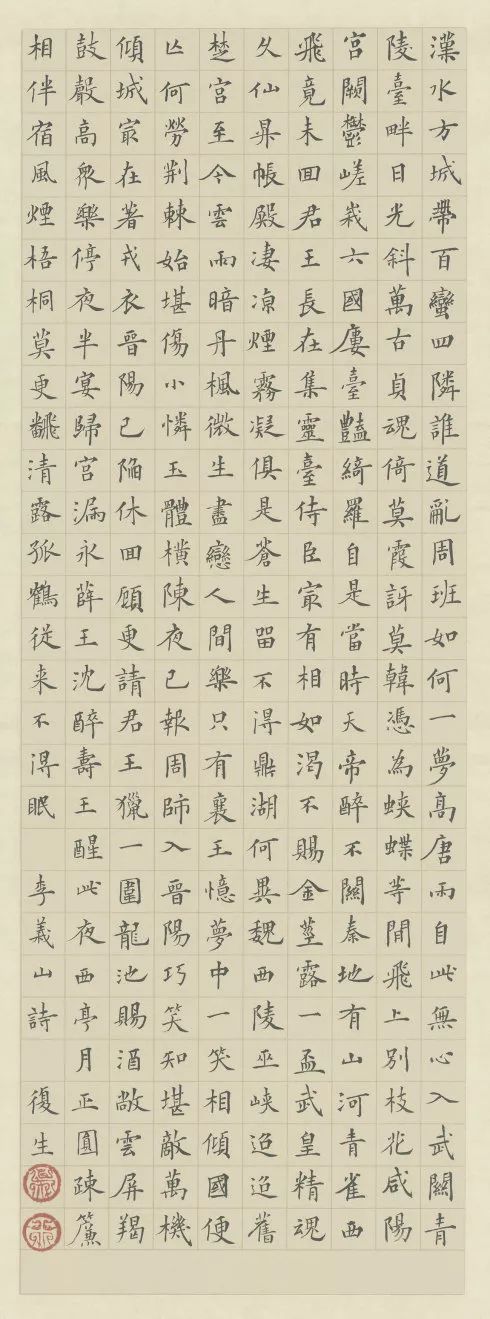 漢水方城帶百蠻四隣誰道亂周班如何一夢高唐雨自此無心入武關青
陵臺畔日光斜萬古貞魂倚莫霞訝莫韓憑為蛺蝶等閒飛上別枝花咸陽
宮闕鬱嵯峩六國廔臺豔綺羅自是當時天帝醉不關秦地有山河青雀西
飛竟未回君王長在集靈臺侍臣㝡有相如渴不賜金莖露一盃武皇精魂
久仙昇帳殿淒涼煙霧凝俱是蒼生畱不得鼎湖何異魏西陵巫峽迢迢舊
楚宮至今雲雨暗丹楓微生盡戀人間樂只有襄王憶夢中一笑相傾國便
亾何勞荆棘始堪傷小憐玉體橫陳夜已報周師入晉陽巧笑知堪敵萬機
傾城㝡在著戎衣晉陽已陷休回顧更請君王獵一圍龍池賜酒敞雲屏羯
鼓聲高衆樂停夜半宴歸宮漏永薛王沈醉壽王醒此夜西亭月正圓疎簾
相伴宿風煙梧桐莫更翻清露孤鶴從来不得眠 李義山詩 復生